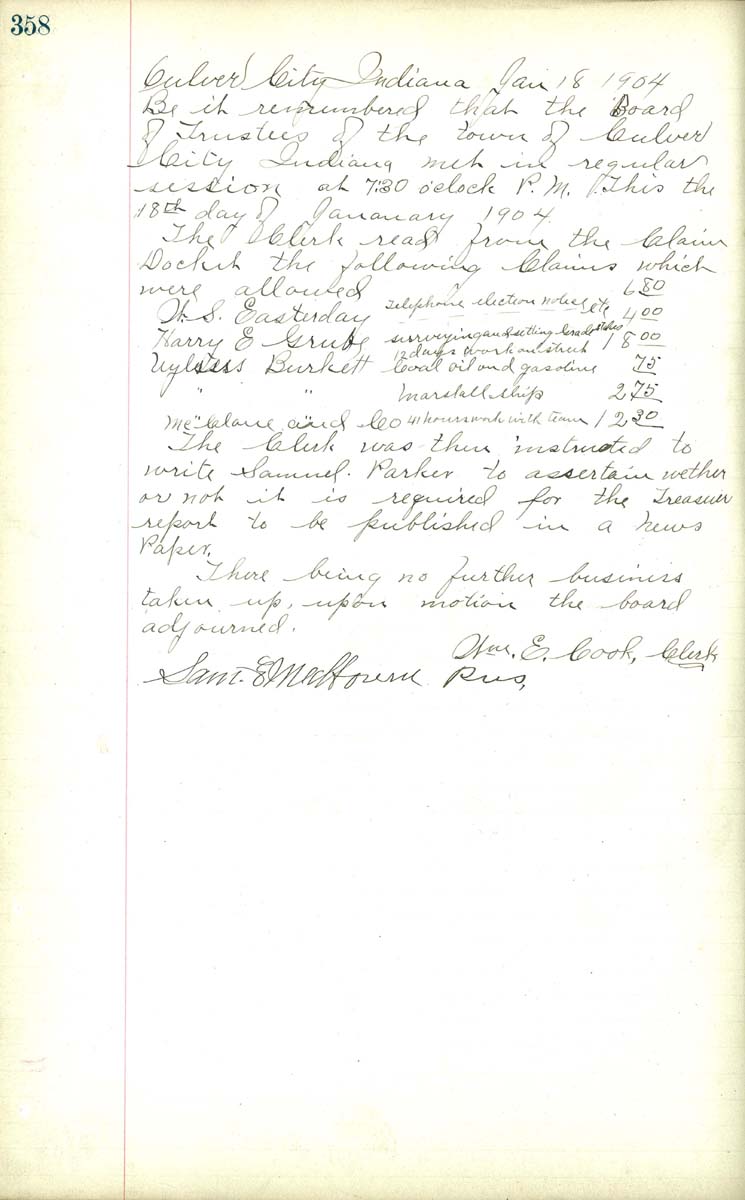 358
Culver City Indiana Jan 18 1904
Be it remembered that the Board
of Trustees of the town of Culver
City Indiana met in regular
session at 7:30 o'clock P. M. This the
18th day of Jananary 1904
The Clerk read from the Claim
Docket the following Claims which
were allowed 6 80
W. S. Easterday Telephone election notice etc 4 00
Harry E Grube surveying and setting Grade stakes 18 00
Uylsses Burkett 12 days work on street Coal oil and gasoline 75
" " Marshallship 2 75
McLane and Co 41 hours work with team 12 30
The Clerk was then instructed to
write Samuel. Parker to assertain wether
or not it is required for the Treasurer
report to be published in a news
Paper.
There being no further business
taken up, upon motion the board
adjourned.
Wm. E. Cook, Clerk
Sam. E Pres,